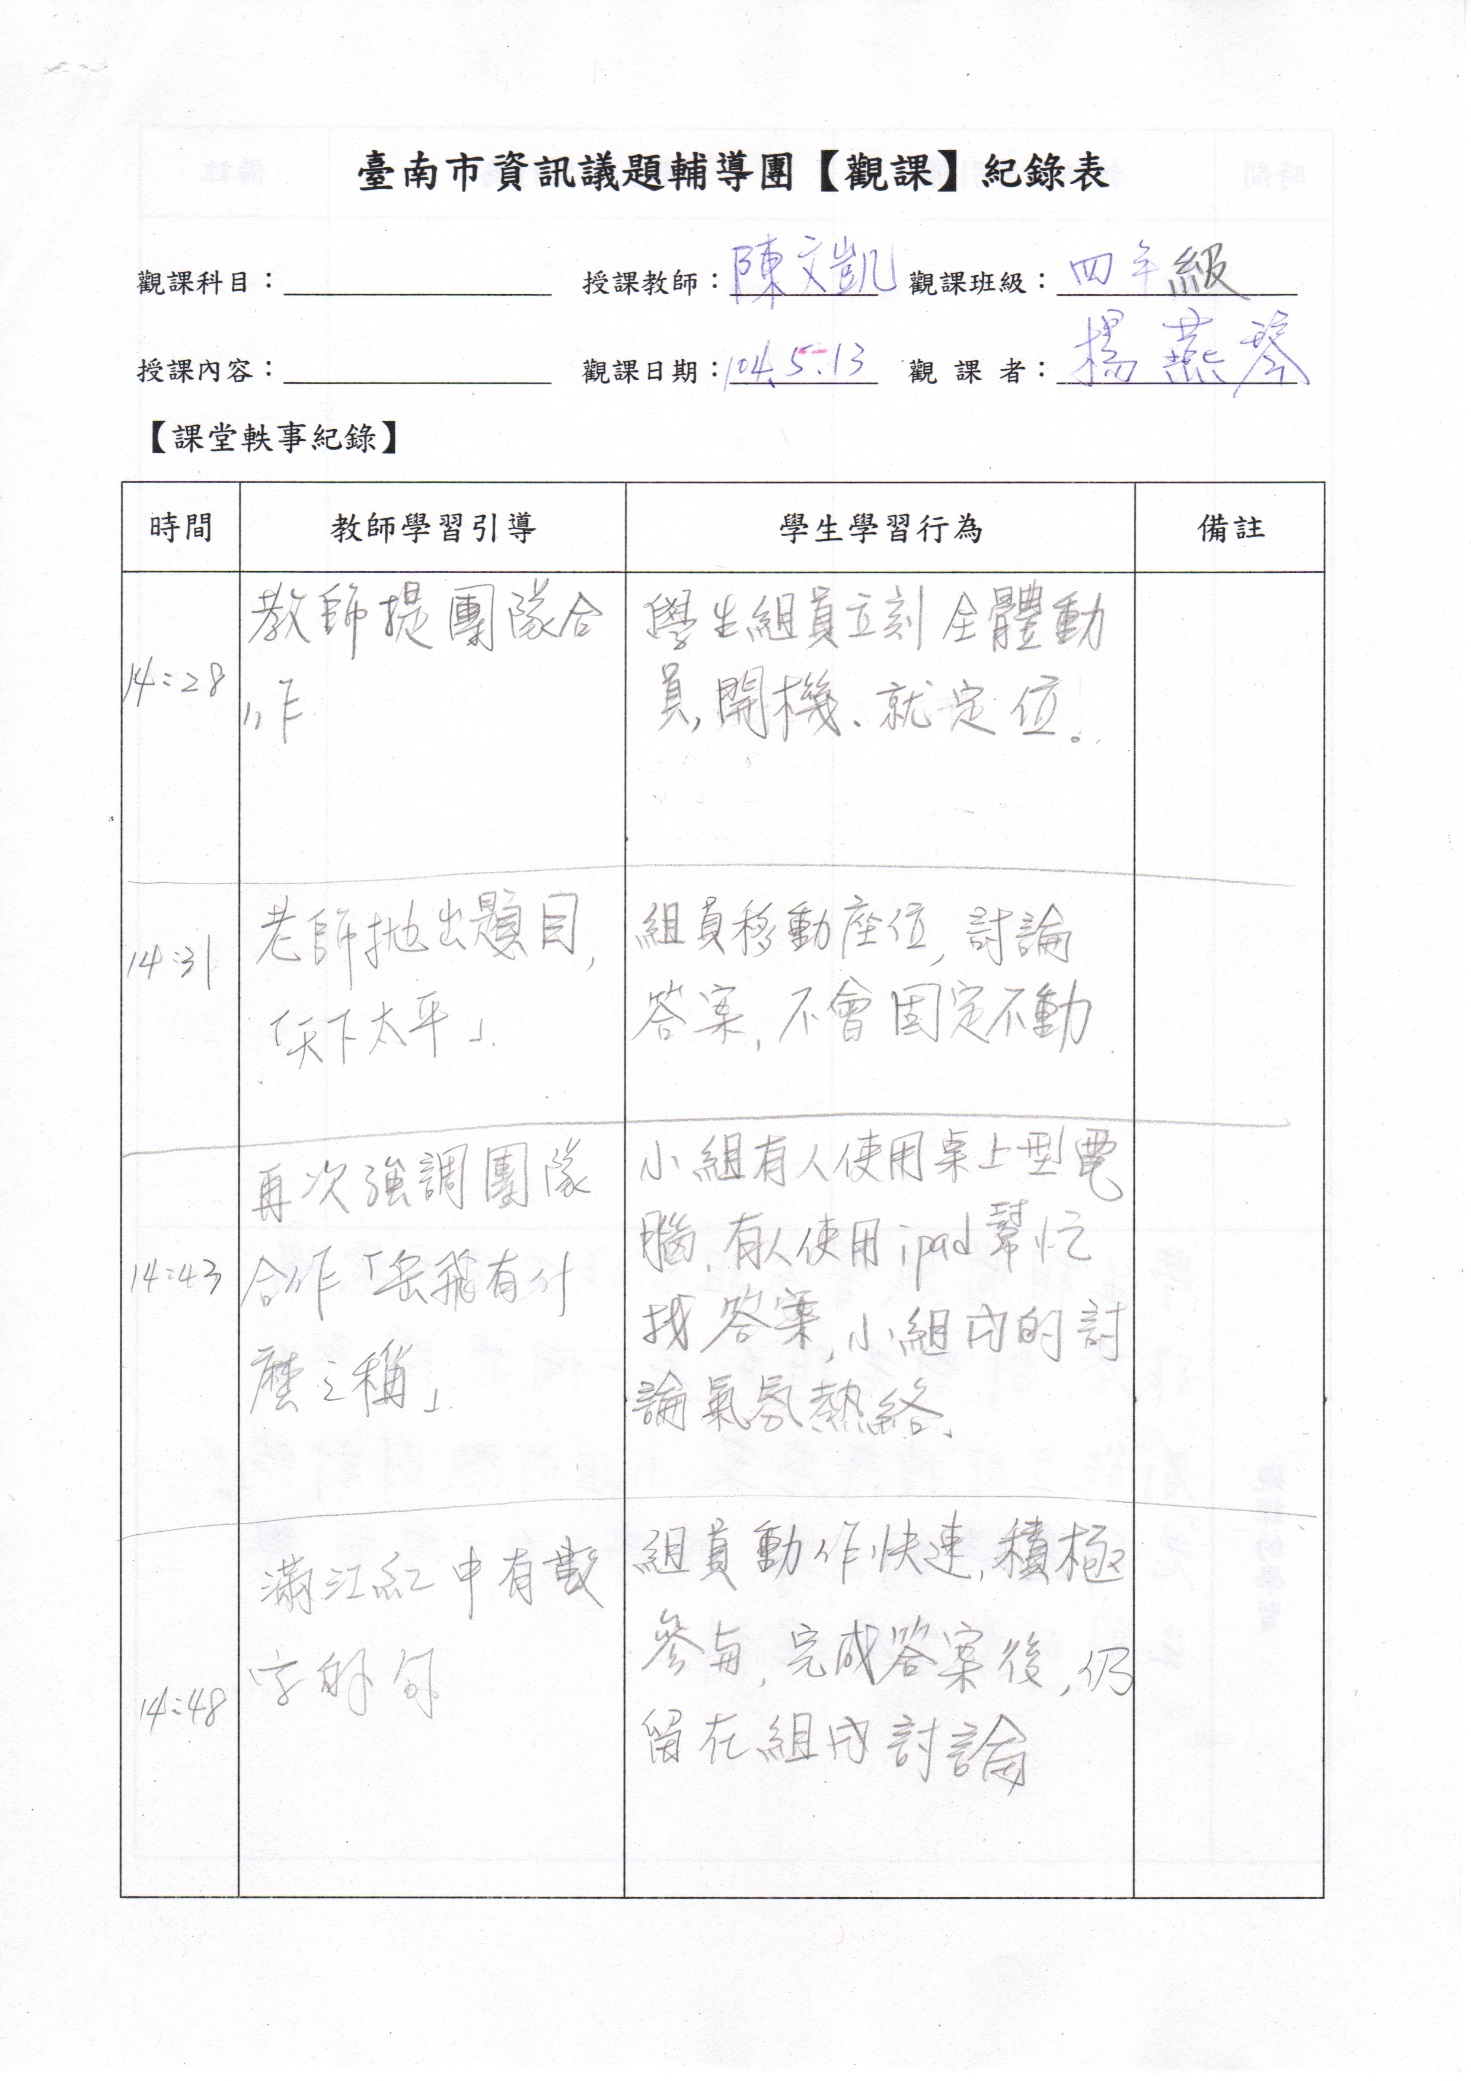 臺南市資訊議題輔導團【觀課】紀錄表
觀課科目： 授課教師：陳文凱 觀課班級：四年級
授課內容： 觀課日期：104.5.13 觀課者：楊燕琴
【課堂軼事紀錄】
時間 教師學習引導 學生學習行為 備註
教師提團隊合
作
14:28
學生組員立刻全體動
員,開機、就定位。
老師拋出題目,
「天下太平」.
14:31
組員移動座位,討論
答案,不會固定不動
再次強調團隊
合作「岳飛有什
麼之稱」
14:43
小組有人使用桌上型電
腦,有人使用ipad幫忙
找答案,小組內的討
論氣氛熱絡、
滿江紅中有數
字的句
14:48
組員動作快速,積極
參與,完成答案後,仍
留在組內討論